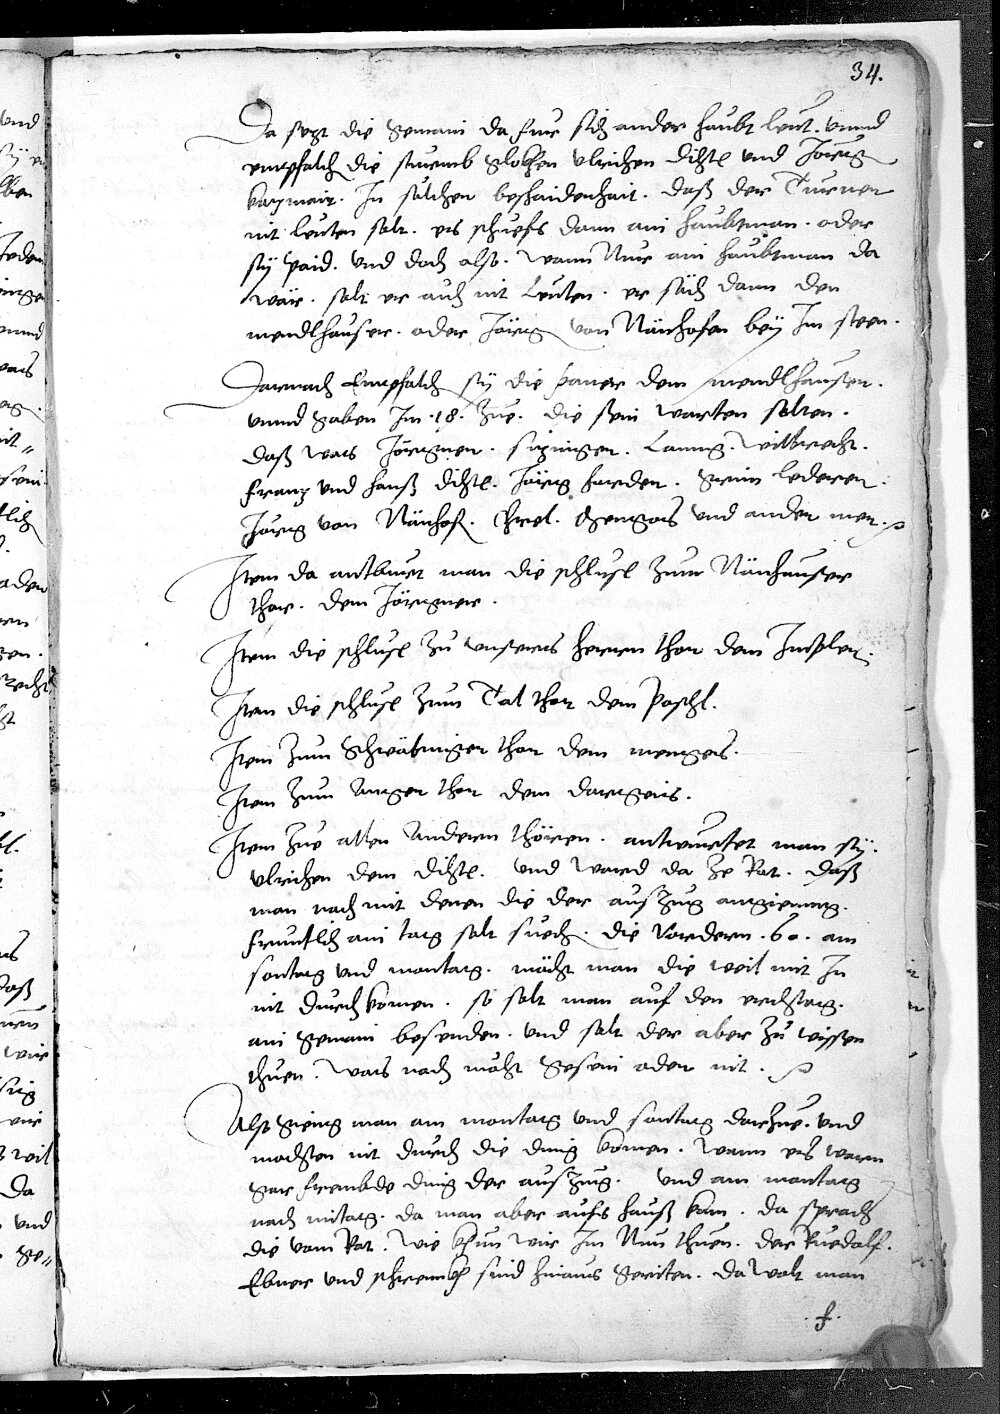 34.
Da sezt die gemain da fur sich ander haubt leut. vnnd
empfalch die sturmb glokhen vlrichen dichtl vnd Jörig
kazmair. In sölchen beschaidenhait. daß der Turner
nit leuten solt. es schuefs dann ain haubtman. oder
sÿ paid. vnd doch also. wann Nur ain haubtman da
wär. solt er auch nit Leuten. er säch dann den
mendlhauser. oder Jörig von Nänhofen beÿ Im steen.
Darnach Empfalch sÿ die paner dem mendlhauser.
vnnd gaben Im .18. Zue. die sein warten solten.
daß was Jörgner. sizinger. Lanng. wilbrecht.
franz vnd hanß dichtl. Jörig
Jörig von Nänhof. vnd ander mer.
Item da antburt man die schlusl Zum Näuhauser
thor. dem Jörgner.
Item die schlusl Zu vnsers herrn thor dem Impler.
Item die schlusl Zum Tal thor dem Poschl.
Item Zum Schwäbinger thor dem menges.
Item Zum Anger thor dem
Item Zue allen Anderen thören. antwurtet man sÿ.
vlrichen dem dichtl. vnd ward da Ze Rat. daß
man nach mit denen die der ausZug angienng.
freuntlich ain tag solt suech. die Vordern .60. am
sontag vnd montag. möcht man die weil mit In
nit durch komen. so solt man auf den erchstag.
ain gemain besenden. vnd solt der aber Zu wissen
thuen. was noch möcht gesein oder nit.
Also gieng man am montag vnd sontag darZue. vnd
mochten nit durch die ding komen. wann es waren
gar frembde ding der ausZug. vnd am montag
nach mitag. da man aber aufs hauß kam. da sprach
die vom Rat. wie khun wir Im Nun thuen. der Ruedolf.
Ebner vnd schrennkh sind hinaus geriten. da wolt man
f.